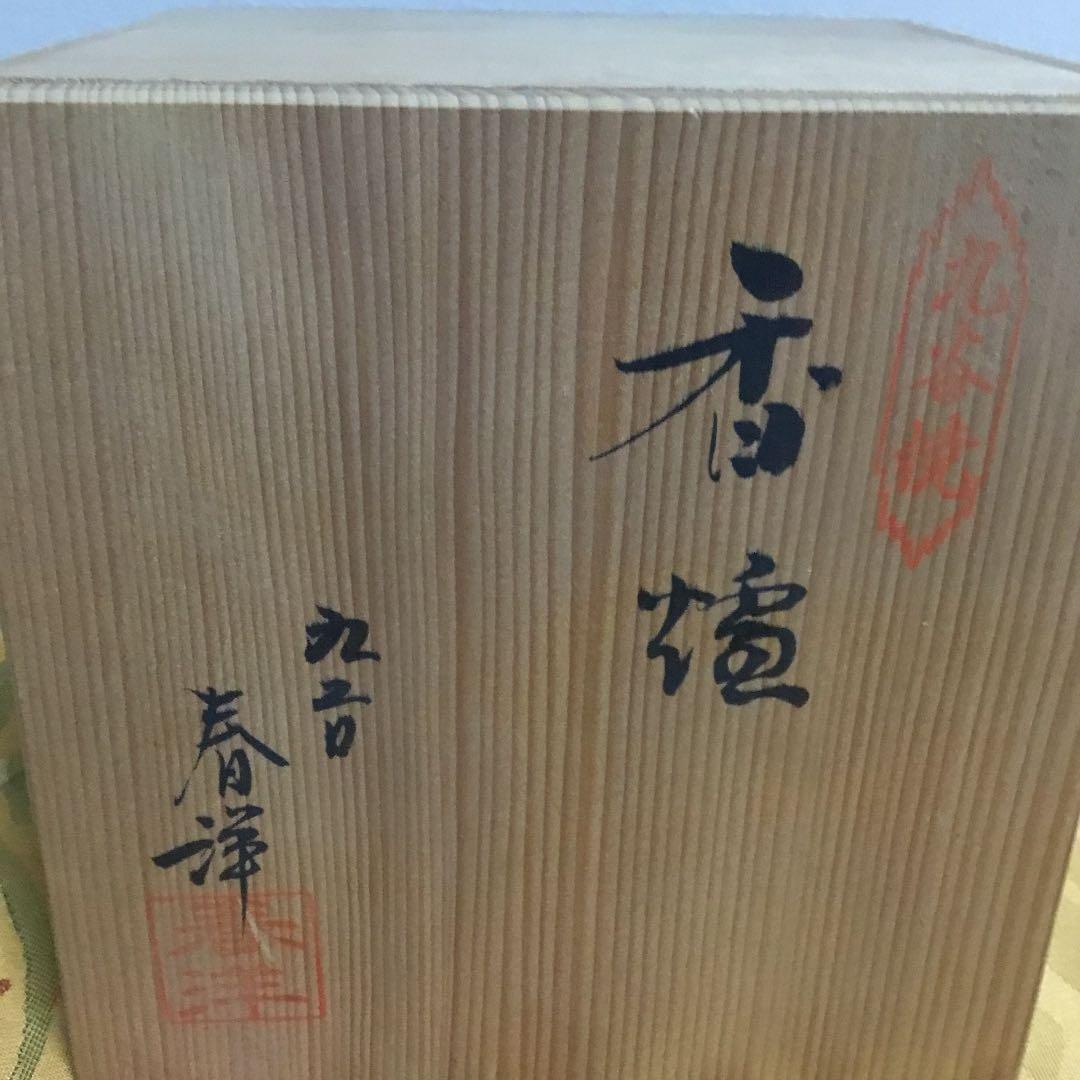 九谷焼
香爐
九谷
春洋
春洋